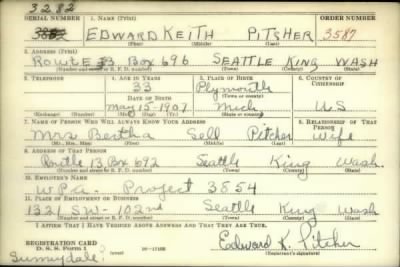 3282
SERIAL NUMBER 1. NAME (Print) ORDER NUMBER
EDWARD KEITH PITSHER 3587
(First) (Middle) (Last)
2. ADDRESS (Print)
ROUTE 13 BOX 696 SEATTLE KING WASH
(Number and street or R. F. D. number) (Town) (County) (State)
3. TELEPHONE 4. AGE IN YEARS 5. PLACE OF BIRTH 6. COUNTRY OF CITIZENSHIP
33 Plymouth
DATE OF BIRTH (Town or county)
May 15-1907 Mich U.S
(Exchange) (Number) (Mo.) (Day) (Yr.) (State or country)
7. NAME OF PERSON WHO WILL ALWAYS KNOW YOUR ADDRESS 8. RELATIONSHIP OF THAT PERSON
Mrs Bertha Sell Pitcher Wife
(Mr., Mrs., Miss) (First) (Middle) (Last)
9. ADDRESS OF THAT PERSON
Route 13 Box 692 Seattle King Wash.
(Number and street or R. F. D. number) (Town) (County) (State)
10. EMPLOYER'S NAME
W.P.a. Project 3854
11. PLACE OF EMPLOYMENT OR BUSINESS
1321 SW-102nd Seattle King Wash
(Number and street or R. F. D. number) (Town) (County) (State)
I AFFIRM THAT I HAVE VERIFIED ABOVE ANSWERS AND THAT THEY ARE TRUE.
REGISTRATION CARD
D. S. S. Form 1 16-17105 Edward K. Pitcher
(Registrant's signature)
Sunnydale?